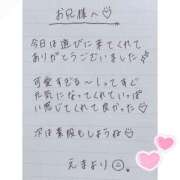 お兄様へ♡
今日は遊びに来てくれて
ありがとうございました
可愛すぎる〜しってすぐ
元気になってくれていっぱい
感じてくれて良かった♡
次は素股もしようね♡
えまより